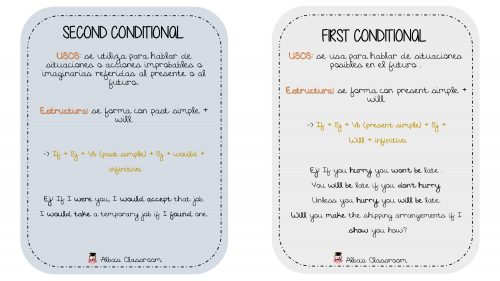 SECOND CONDITIONAL
USOS: se utiliza para hablar de
situaciones o acciones improbables o
imaginarias referidas al presente o al
futuro.
Estructura: se forma con past simple +
will
-> If + Sj + Vb (past simple) + Sj + would +
infinitivo.
Ej: If I were you, I would accept that job.
I would take a temporary job if I found one.
Alba's Classroom
FIRST CONDITIONAL
USOS: se usa para hablar de situaciones
posibles en el futuro .
Estructura: se forma con present simple +
will
-> If + Sj + Vb (present simple) + Sj +
Will + infinitivo.
Ej: If you hurry you won't be late.
You will be late if you don't hurry.
Unless you hurry you will be late.
Will you make the shipping arrangements if I
show you how?
Alba's Classroom